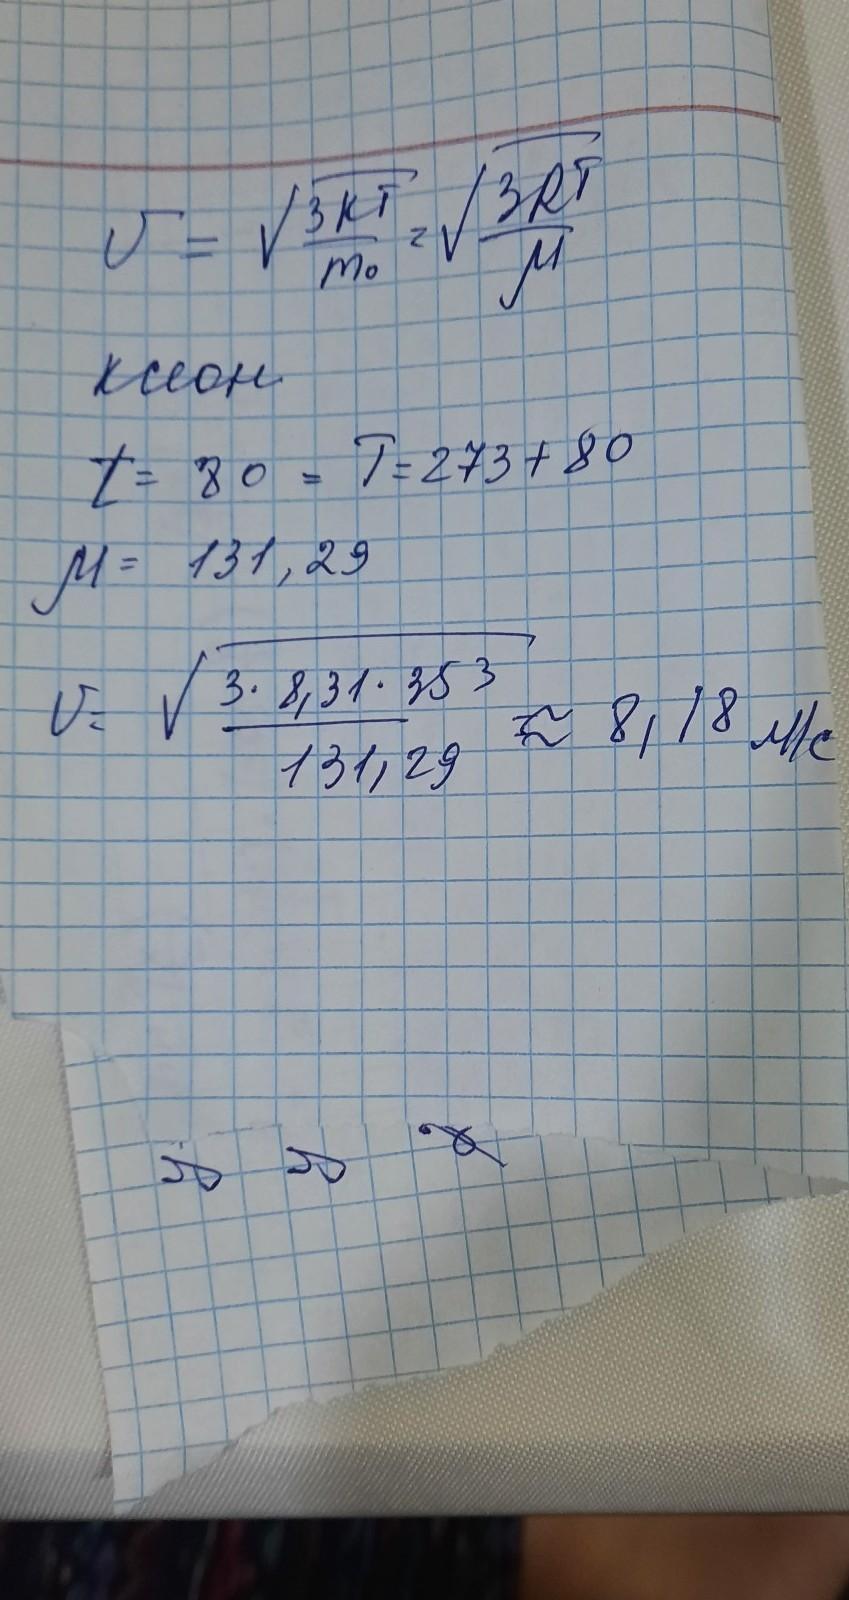 v = √3kT/m₀ = √3RT/μ
ксеон
t = 80 = T = 273 + 80
μ = 131,29
v = √3·8,31·353/131,29 ≈ 8,18 м/с